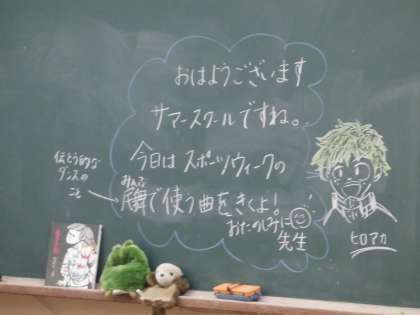 おはようございます
サマースクールですね。
今日は スポーツウィークの
みんぶ
民舞で使う曲をきくよ!
おたのしみに
先生
伝とう的な
ダンスの
こと
ヒロアカ